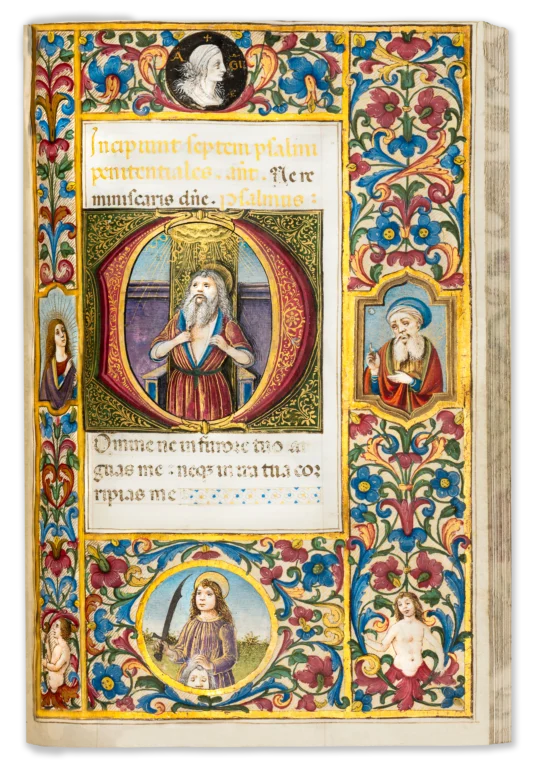 A GU
Incipiunt septem psalmi
penitentiales. añt. Ne re
miniscaris dñe. psalmus:
Domine ne in furore tuo ar
guas me: neqz in ira tua cor
ripias me